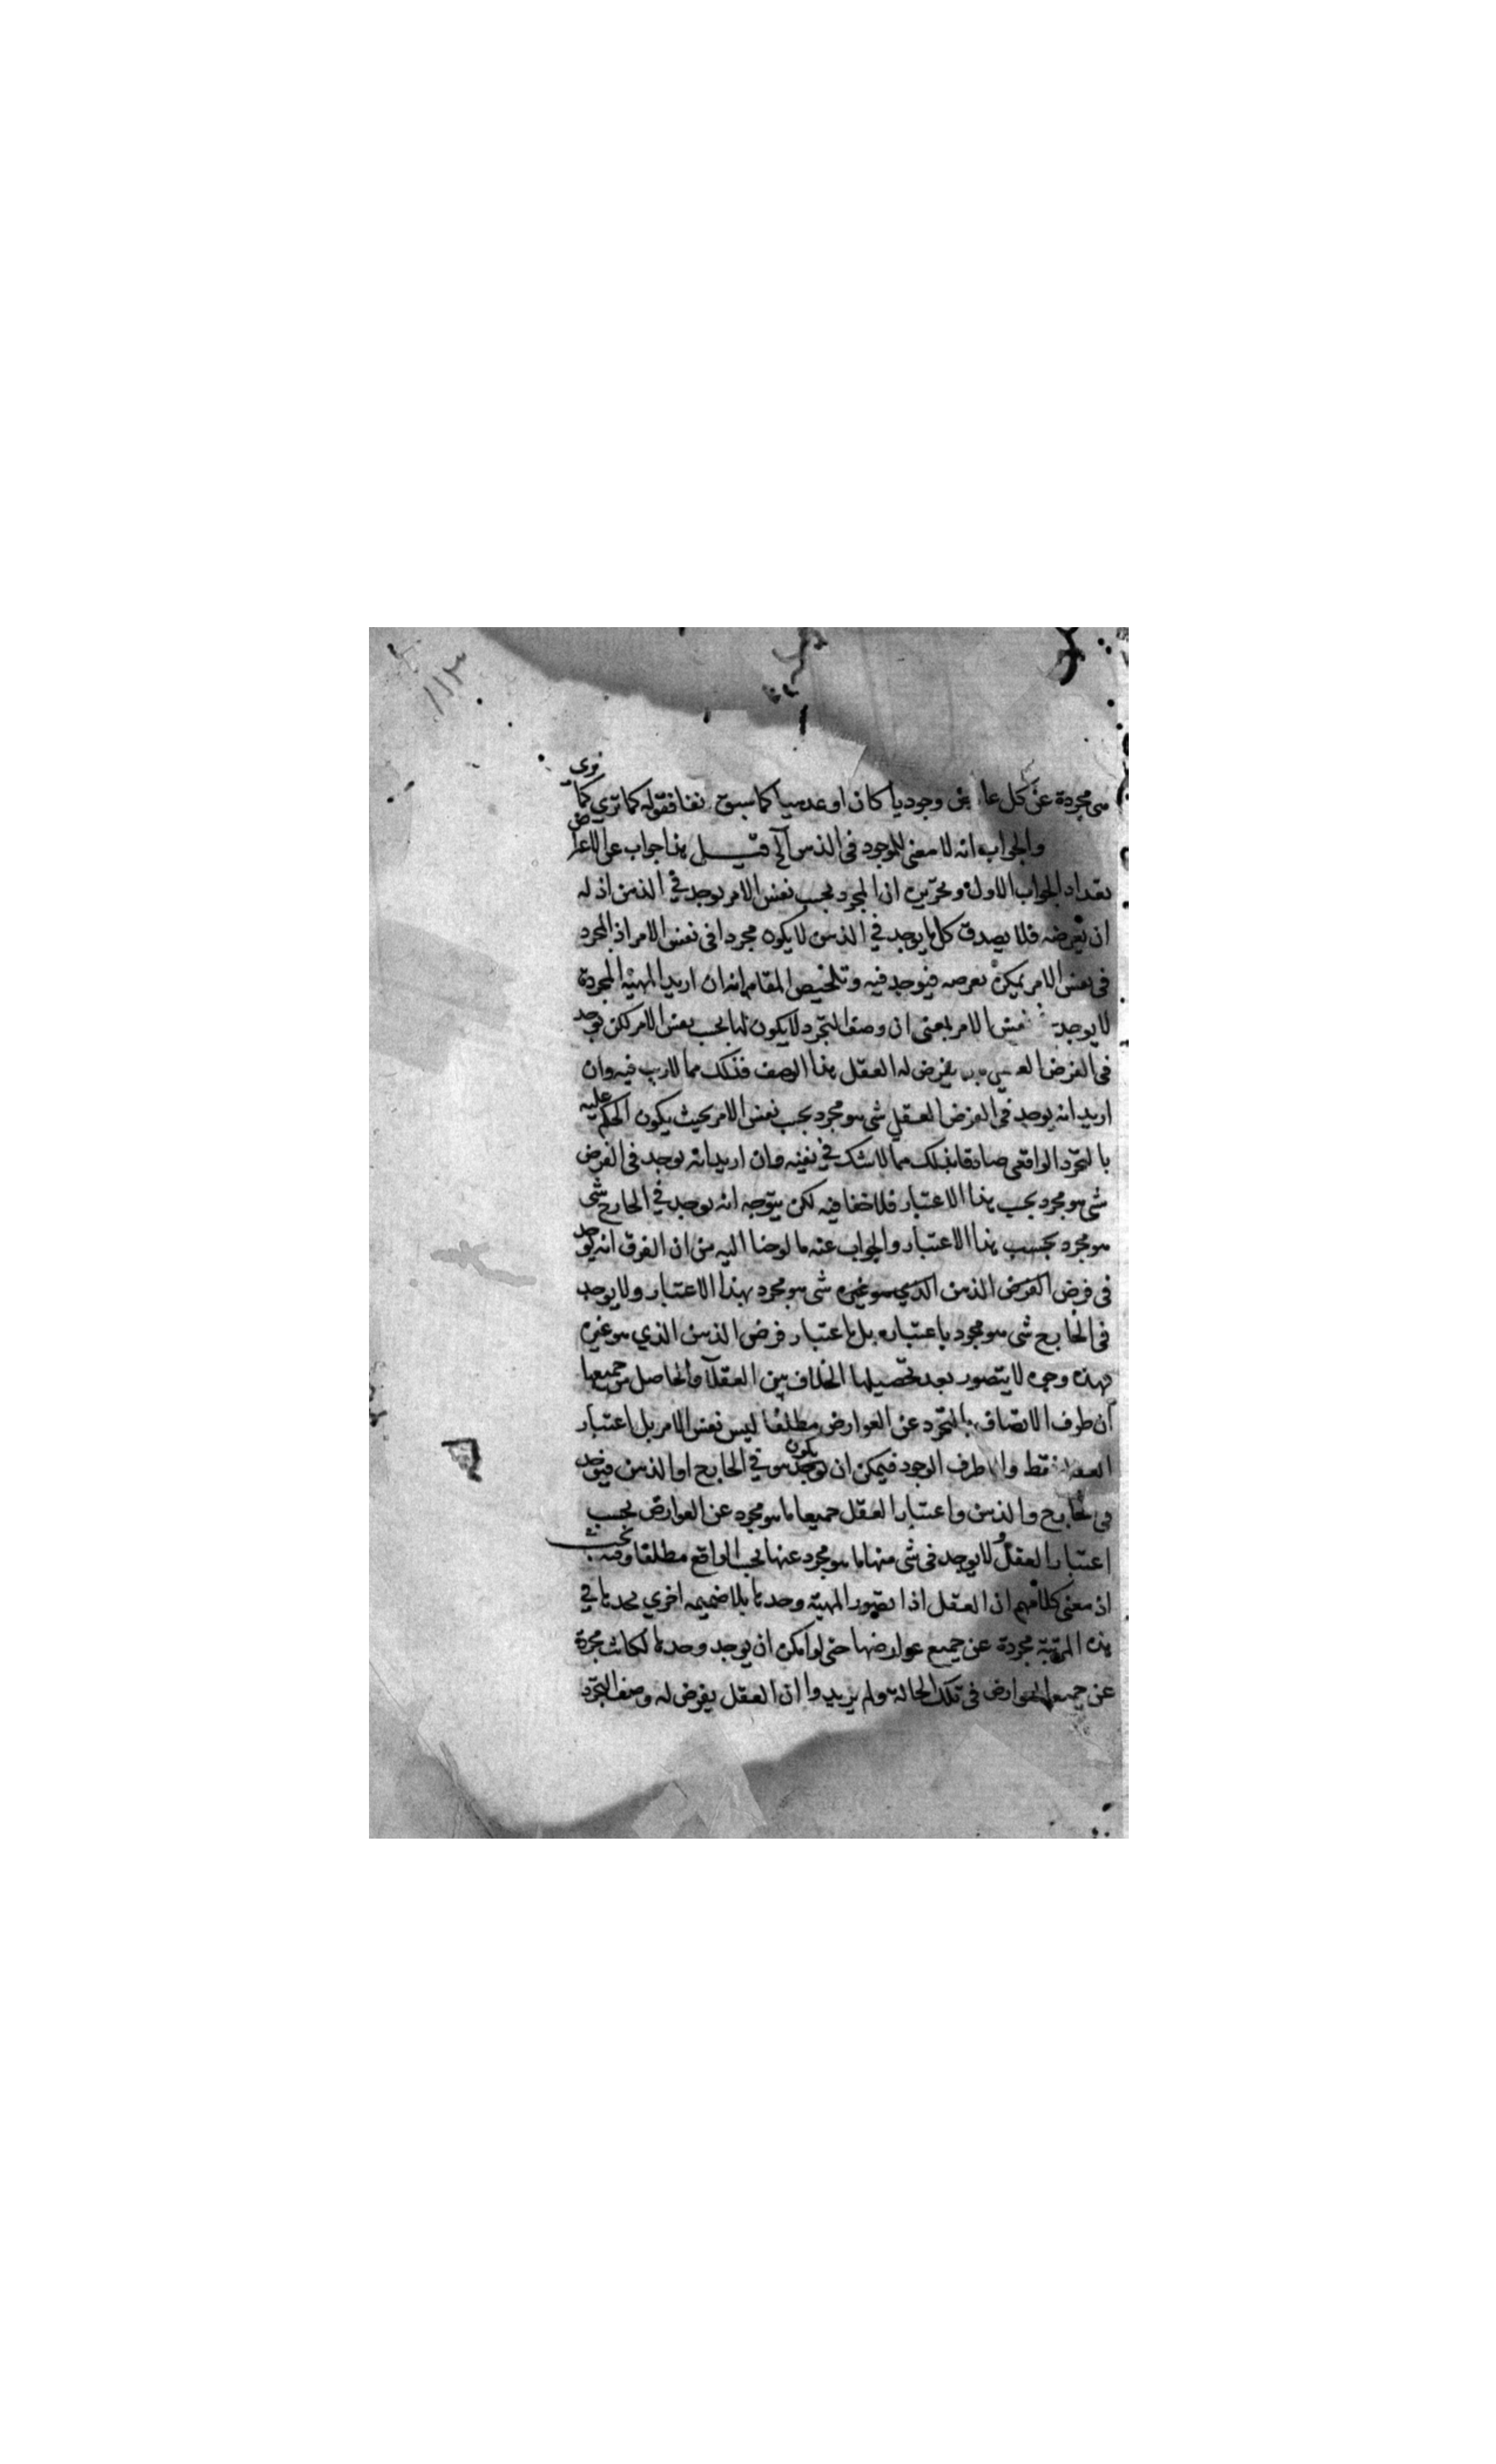 ١١٣
هى مجردة عن كل عارض وجوديا كان او عدميا كما سبق نقنا فقوله كما ترى كما ترى
والجواب انه لا معنى للموجود فى الذهن آه قيل هذا جواب عن الاعتراض
بعد ايراد الجواب الاول وتحريره ان المجرد بحسب نفس الامر يوجد في الذهن اذ له
ان يفرضه فلا يصدق كل ما يوجد في الذهن لا يكون مجردا فى نفس الامر اذ المجرد
فى نفس الامر يمكن فرضه فيوجد فيه وتلخيص المقام انه ان اريد المهية المجردة
لا يوجد نفس الامر بمعنى ان وصف التجرد لا يكون لها بحسب نفس الامر لكن يوجد
فى الفرض العقلى يفرض له العقل هذا الوصف فذلك مما لا ريب فيه وان
اريد انه يوجد فى الفرض العقلي شى هو مجرد بحسب نفس الامر بحيث يكون الحكم عليه
بالتجرد الواقعى صادقا فذلك مما لا شك في نفيه وان اريد انه يوجد فى الفرض
شى هو مجرد بحسب هذا الاعتبار فلا خفا فيه لكن يتوجه انه يوجد في الخارج شى
هو مجرد بحسب هذا الاعتبار والجواب عنه ما لوحنا اليه من ان الفرق انه يوجد
فى فرض الفرض الذهن الذي هو غيره شى هو مجرد بهذا الاعتبار ولا يوجد
فى الخارج شى هو مجرد باعتباره بل باعتبار فرض الذهن الذي هو غيره
فهذه وجوه لا يتصور بعد تحصيلها الخلاف بين العقلآ والحاصل من جميعها
ان ظرف الاتصاف بالتجرد عن العوارض مطلقا ليس نفس الامر بل اعتبار
العقل فقط واما ظرف الوجود فيمكن ان يكون هو في الخارج او الذهن فيوجد
فى الخارج والذهن واعتبار العقل جميعا ما هو مجرد عن العوارض بحسب
اعتبار العقل ولا يوجد فى شى منها ما هو مجرد عنها بحسب الواقع مطلقا وفيه بحث
اذ معنى كلامهم ان العقل اذا تصور المهية وحدها بلا ضميمه اخري يجدها في
هذه المرتبة مجردة عن جميع عوارضها حتى لو امكن ان يوجد وحدها لكانت مجردة
عن جميع العوارض فى تلك الحالة ولم يريدوا ان العقل يفرض له وصف التجرد